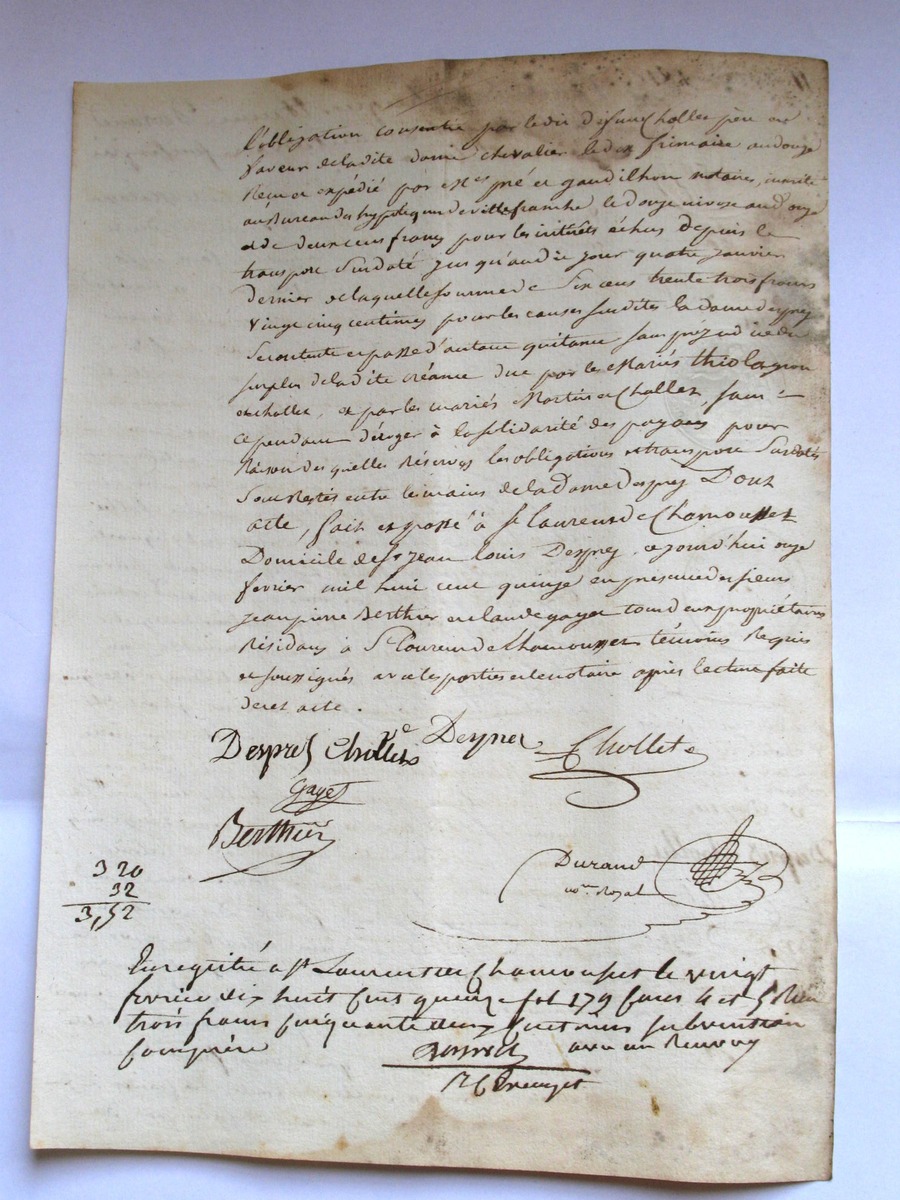 l'obligation consentie par le dit défunt Chollet père en
faveur de la dite dame chevalier le dix frimaire an douze
Reçu et expédié par et gaudilhon notaires, inscrite
au Bureau des hypoteques de villefranche le douze nivose an douze
et de deux cens francs pour les intérêts échus depuis le
transport Susdaté jusqu'au dit jour quatre janvier
dernier de laquelle somme de Six cens trente trois francs
vingt cinq centimes pour les causes susdites la dame desprez
Se contente et passe d'autant quitance sans préjudice du
surplus de la dite créance due par les Mariés thiolagron
et chollet, et par les mariés Martin et Chollet, sans =
cependant déroger à la solidarité des payans pour
Raison des quelles Réserves les obligations et transport Susdatés
Sont Restés entre les mains de la Dame desprez Dont
acte, fait et passé à St Laurent de Chamousset
Domicile de Sr Jean Louis Desprez, cejourd'hui onze
fevrier mil huit cent quinze en presence des sieurs
jean pierre Berthier et claude gayet tous deux propriétaires
Résidans à St Laurent de Chamousset témoins Requis
et soussignés avec les parties et le notaire après lecture faite
de cet acte .
Despres Chollet Desprez Chollet
Gayet
Berthier
Durand
nore Royal
3 20
32
3,52
Enregistré a St Laurent de Chamousset le vingt
fevrier dix huit cent quinze fol 179 cases 4 et 5 Recu
trois francs cinquante deux centimes subvention
comprise avec un Renvoy